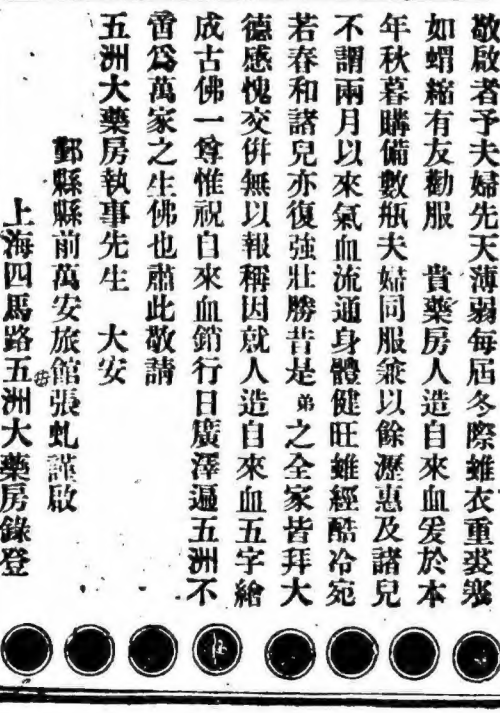 敬啟者予夫婦先天薄弱每屆冬際雖衣重裘幾
如蝟縮有友勸服　貴藥房人造自來血爰於本
年秋暮購備數瓶夫婦同服兼以餘瀝惠及諸兒
不謂兩月以來氣血流通身體健旺雖經酷冷宛
若春和諸兒亦復強壯勝昔是弟之全家皆拜大
德感愧交併無以報稱因就人造自來血五字繪
成古佛一尊惟祝自來血銷行日廣澤遍五洲不
啻爲萬家之生佛也肅此敬請
五洲大藥房執事先生　大安
鄞縣縣前萬安旅館張虬謹啟
上海四馬路五洲大藥房錄登